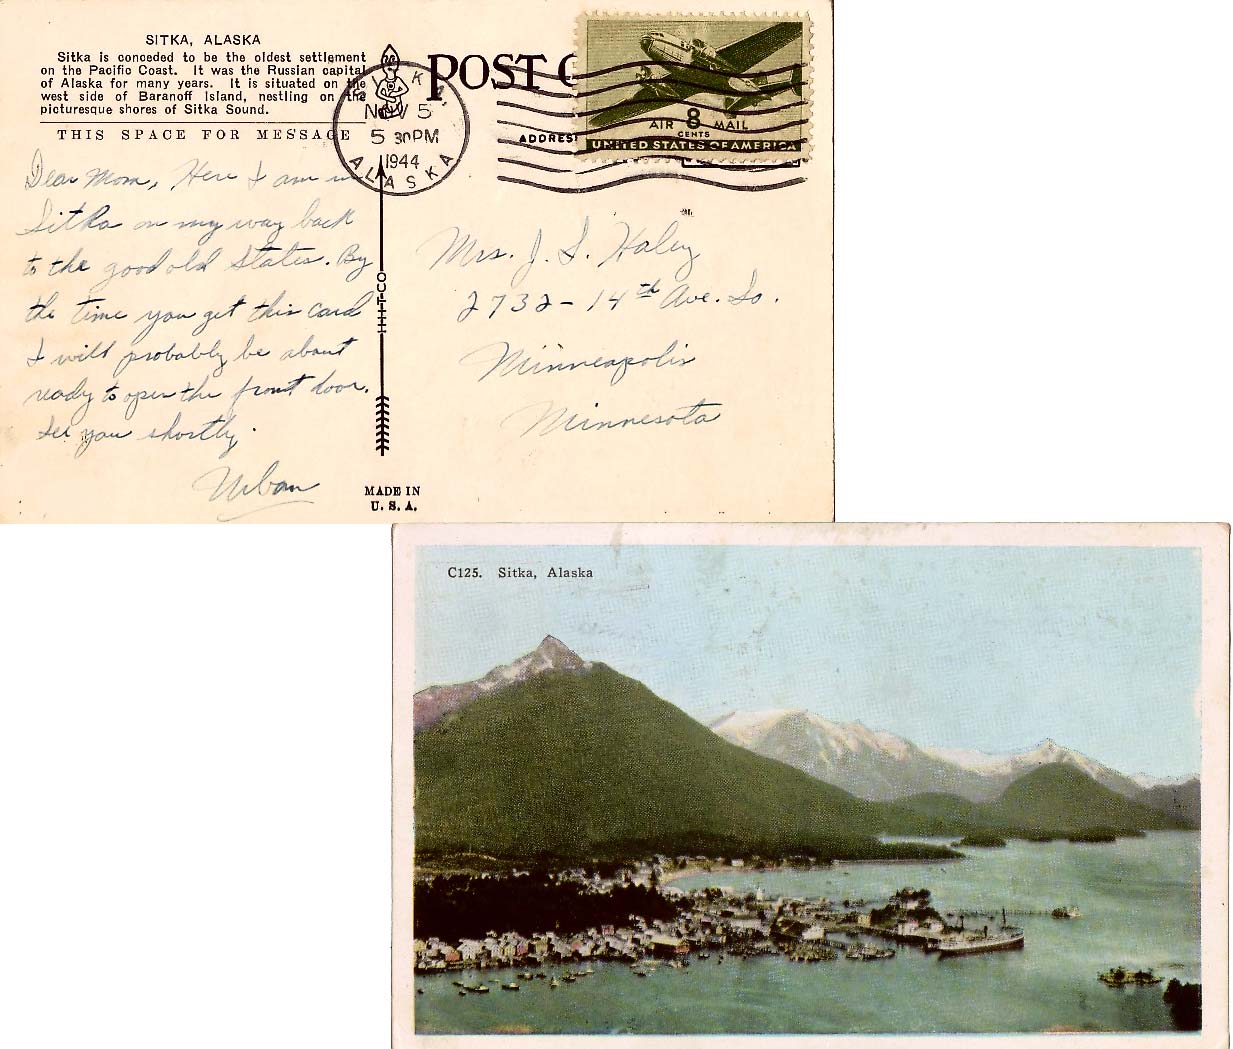 SITKA, ALASKA
Sitka is conceded to be the oldest settlement
on the Pacific Coast. It was the Russian capital
of Alaska for many years. It is situated on the
west side of Baranoff Island, nestling on the
picturesque shores of Sitka Sound.
THIS SPACE FOR MESSAGE
Dear Mom, Here I am in
Sitka on my way back
to the good old States. By
the time you get this card
I will probably be about
ready to open the front door.
See you shortly.
Urban
POST C
SITKA,
NOV 5
5 30PM
1944
ALASKA
ADDRES
AIR 8 MAIL
CENTS
UNITED STATES OF AMERICA
Mrs. J. S. Haley
2732-14th Ave. So.
Minneapolis
Minnesota
MADE IN
U. S. A.
C125. Sitka, Alaska